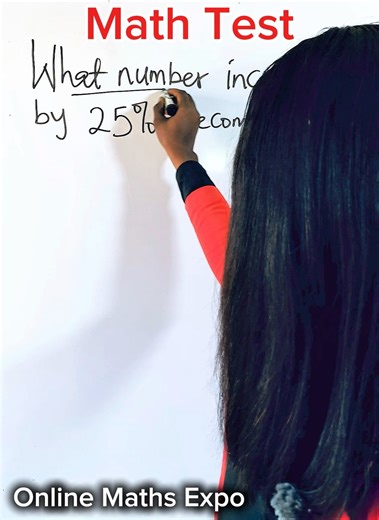 Math Test
What number inc
by 25% ecom
Online Maths Expo